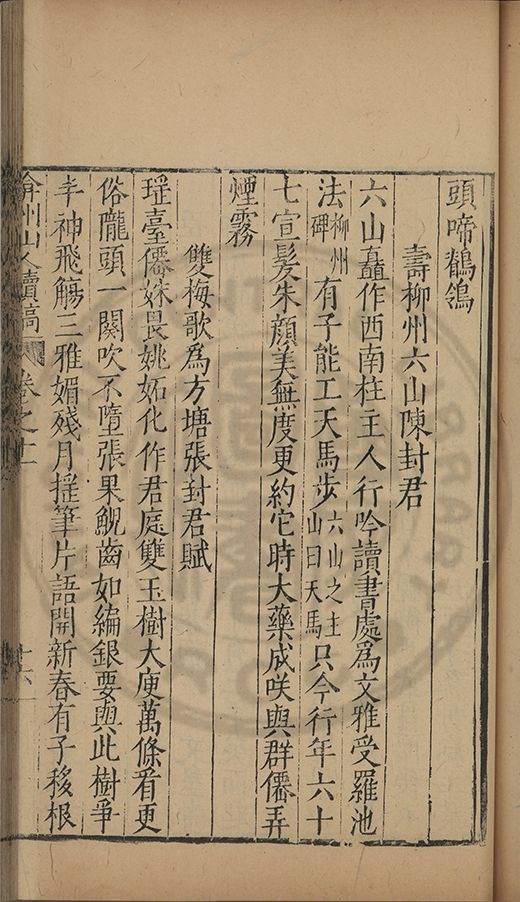 頭啼鶺鴒
壽柳州六山陳封君
六山矗作西南柱主人行吟讀書處爲文雅受羅池
法柳州碑有子能工天馬步六山之主山曰天馬只今行年六十
七宣髮朱顏美無度更約它時大藥成咲與群僊弄
煙霧
雙梅歌爲方塘張封君賦
瑶臺僊姝畏姚妬化作君庭雙玉樹大庾萬條看更
俗隴頭一闋吹不墮張果鯢齒如編銀要與此樹爭
羊神飛觴三雅媚殘月揺筆片語開新春有子移根
弇州山人續稿 卷之十二